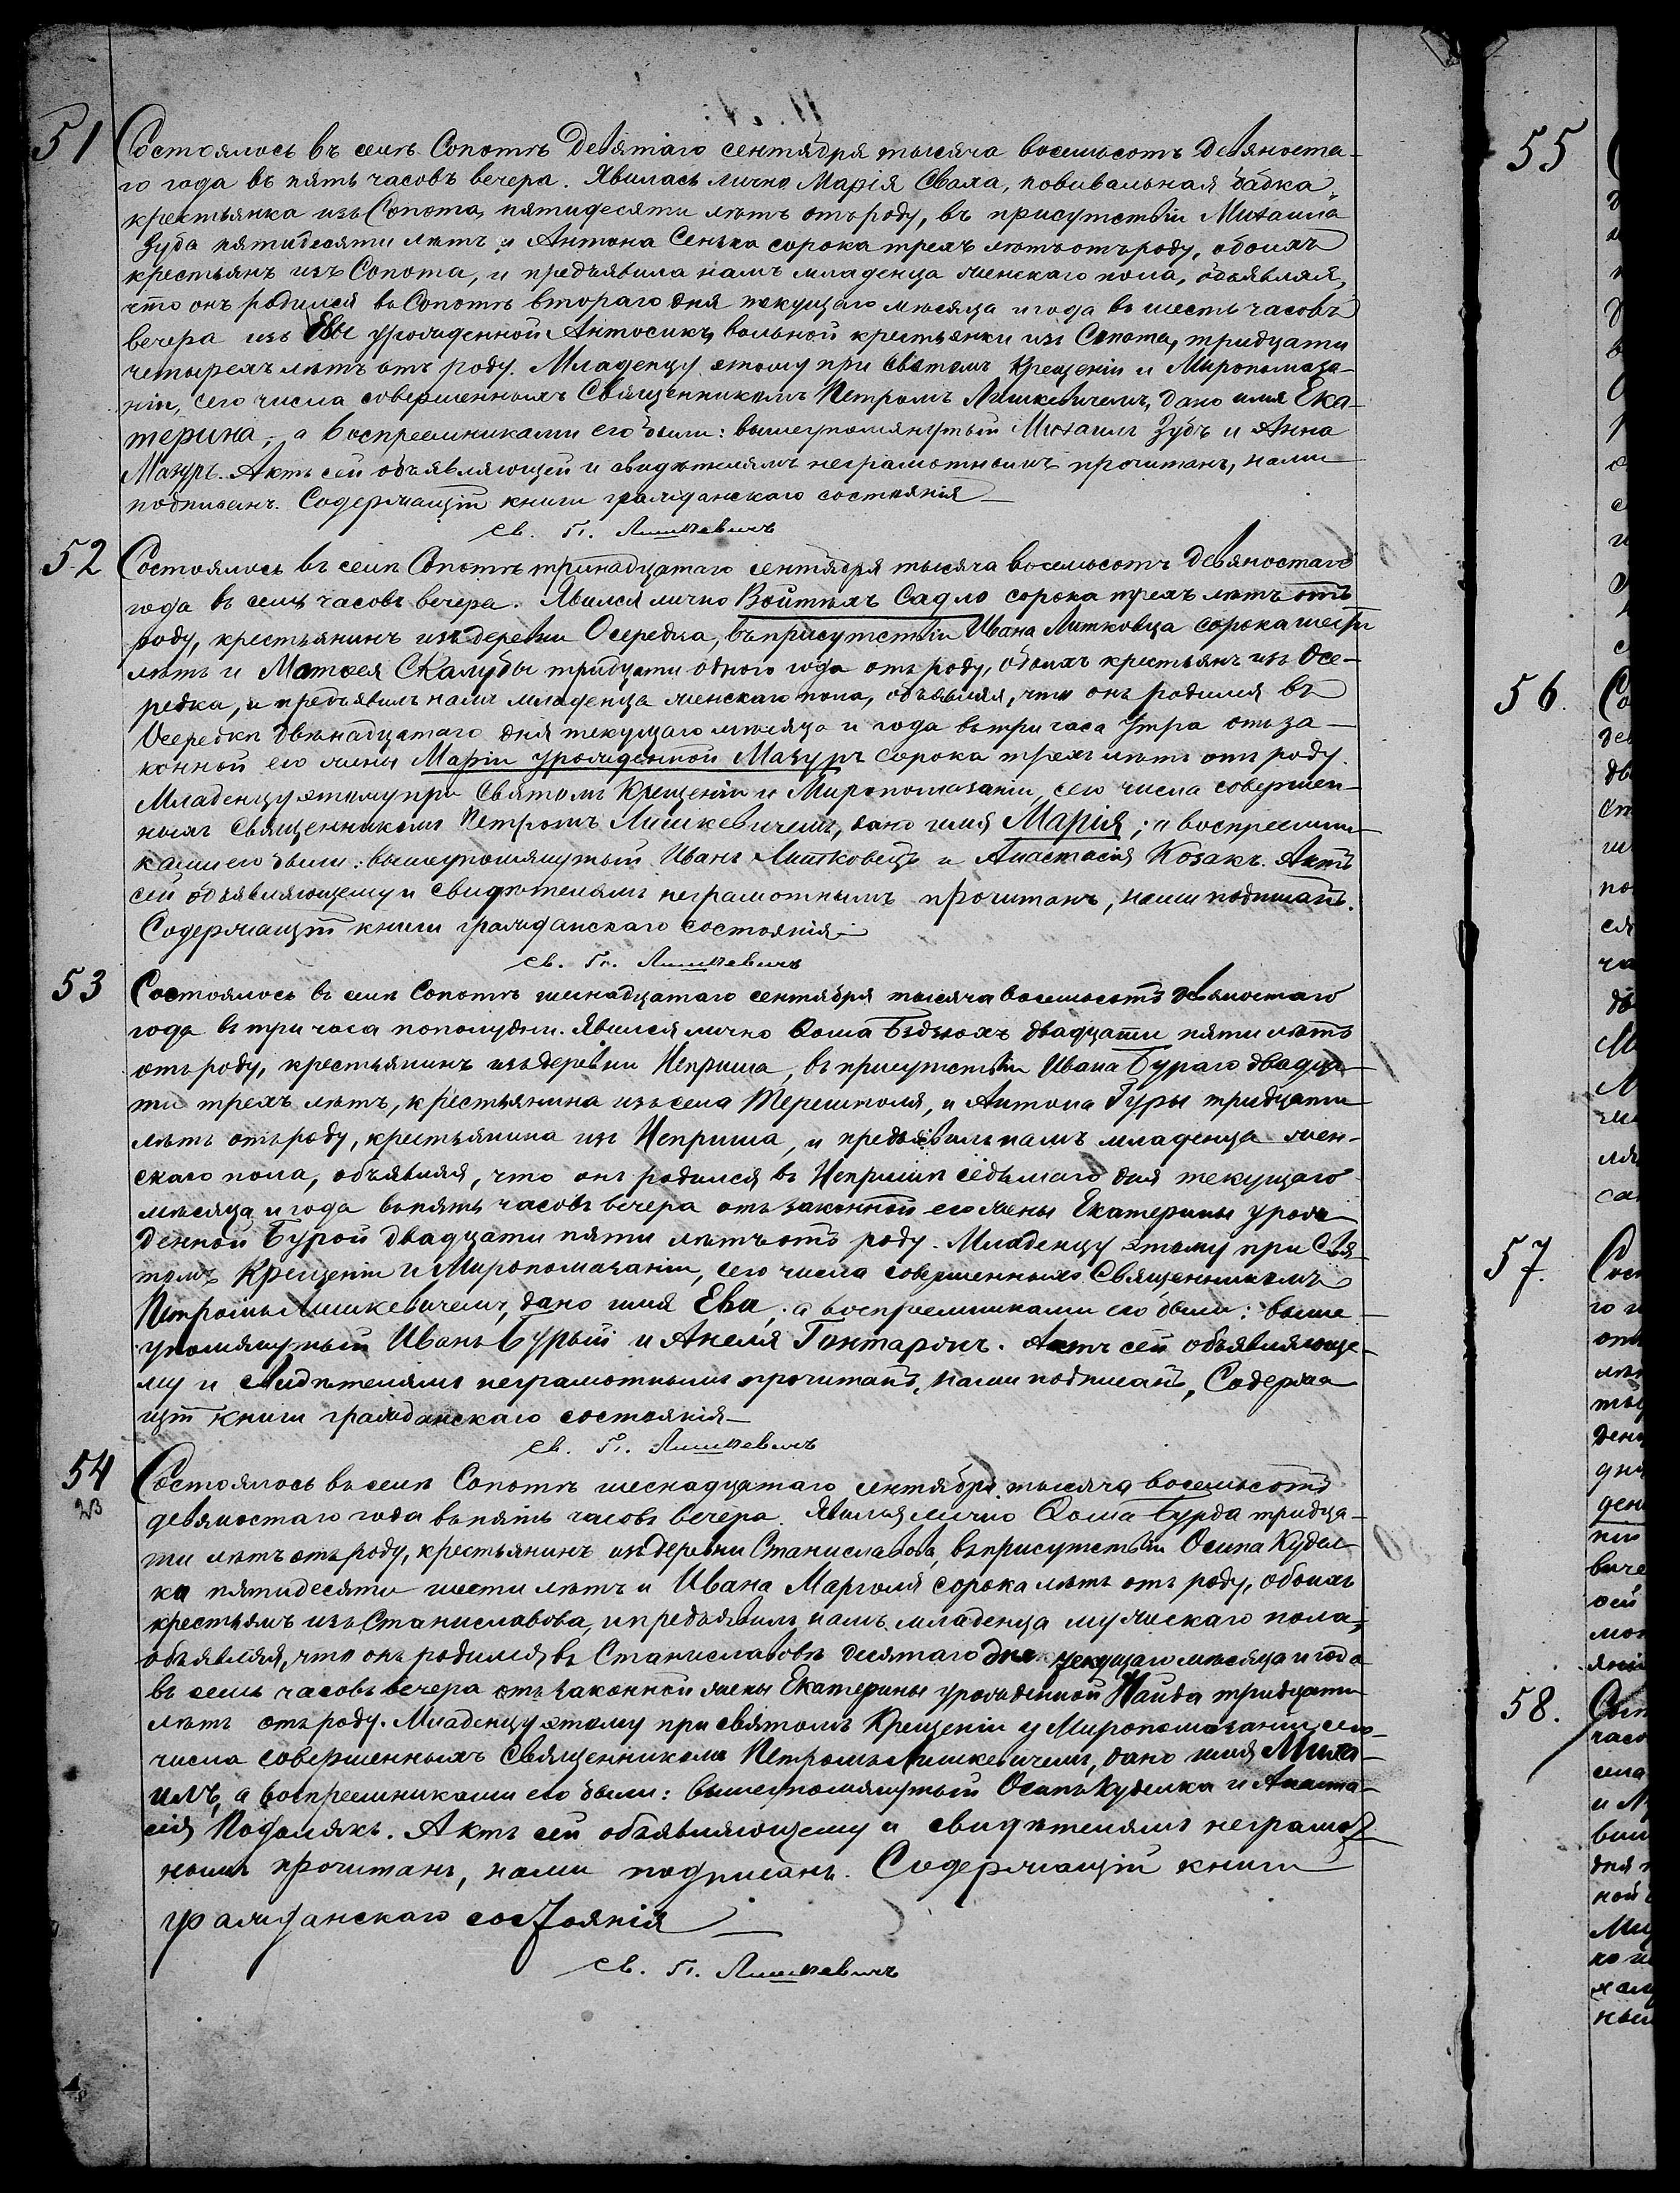 51
Состоялось въ селѣ Сопотѣ девятаго сентября тысяча восемьсотъ девяноста-
го года въ пять часовъ вечера. Явилась лично Марія Сваха, повивальная бабка,
крестьянка изъ Сопота, пятидесяти лѣтъ отъ роду, въ присутствіи Михаила
Зуба пятидесяти лѣтъ и Антона Сенька сорока трехъ лѣтъ отъ роду, обоихъ
крестьянъ изъ Сопота, и предъявила намъ младенца женскаго пола, объявляя,
что онъ родился въ Сопотѣ втораго дня текущаго мѣсяца и года въ шесть часовъ
вечера изъ Евы урожденной Антосикъ, вольной крестьянки изъ Сопота, тридцати
четырехъ лѣтъ отъ роду. Младенцу этому при Святомъ Крещеніи и Миропомаза-
ніи, сего числа совершенныхъ Священникомъ Петромъ Лишкевичемъ, дано имя Ека-
терина, а воспреемниками его были: вышеупомянутый Михаилъ Зубъ и Анна
Мазуръ. Актъ сей объявляющей и свидѣтелямъ неграмотнымъ прочитанъ, нами
подписанъ. Содержащій книги гражданскаго состоянія
Св. П. Лишкевичъ
52
Состоялось въ селѣ Сопотѣ тринадцатаго сентября тысяча восемьсотъ девяностаго
года въ семь часовъ вечера. Явился лично Войтѣхъ Садло сорока трехъ лѣтъ отъ
роду, крестьянинъ изъ деревни Осередка, въ присутствіи Ивана Литковца сорока шести
лѣтъ и Матѳея Скалубы тридцати одного года отъ роду, обоихъ крестьянъ изъ Осе-
редка, и предъявилъ намъ младенца женскаго пола, объявляя, что онъ родился въ
Осередкѣ двѣнадцатаго дня текущаго мѣсяца и года въ три часа утра отъ за-
конной его жены Маріи урожденной Мазуръ сорока трехъ лѣтъ отъ роду.
Младенцу этому при Святомъ Крещеніи и Миропомазаніи, сего числа совершен-
ныхъ Священникомъ Петромъ Лишкевичемъ, дано имя Марія; а воспреемни-
ками его были: вышеупомянутый Иванъ Литковецъ и Анастасія Козакъ. Актъ
сей объявляющему и свидѣтелямъ неграмотнымъ прочитанъ, нами подписанъ.
Содержащій книги гражданскаго состоянія
Св. П. Лишкевичъ
53
Состоялось въ селѣ Сопотѣ шеснадцатаго сентября тысяча восемьсотъ девяностаго
года въ три часа пополудни. Явился лично Ѳома Бздзюхъ двадцати пяти лѣтъ
отъ роду, крестьянинъ изъ деревни Неприша, въ присутствіи Ивана Бураго двадца-
ти трехъ лѣтъ, крестьянина изъ села Терешполя, и Антона Гуры тридцати
лѣтъ отъ роду, крестьянина изъ Неприша, и предъявилъ намъ младенца жен-
скаго пола, объявляя, что онъ родился въ Непришѣ седьмаго дня текущаго
мѣсяца и года въ пять часовъ вечера отъ законной его жены Екатерины урож-
денной Бурой двадцати пяти лѣтъ отъ роду. Младенцу этому при Свя-
томъ Крещеніи и Миропомазаніи, сего числа совершенныхъ Священникомъ
Петромъ Лишкевичемъ, дано имя Ева, а воспреемниками его были: выше-
упомянутый Иванъ Бурый и Анеля Гонтаржъ. Актъ сей объявляюще-
му и свидѣтелямъ неграмотнымъ прочитанъ, нами подписанъ, Содержа
щій книги гражданскаго состоянія
Св. П. Лишкевичъ
54
Состоялось въ селѣ Сопотѣ шеснадцатаго сентября тысяча восемьсотъ
девяностаго года въ пять часовъ вечера. Явился лично Ѳома Бурда тридца-
ти лѣтъ отъ роду, крестьянинъ изъ деревни Станиславова, въ присутствіи Осипа Кудел-
ка пятидесяти шести лѣтъ и Ивана Марголя сорока лѣтъ отъ роду, обоихъ
крестьянъ изъ Станиславова, и предъявилъ намъ младенца мужескаго пола,
объявляя, что онъ родился въ Станиславовѣ десятаго дня текущаго мѣсяца и года
въ семь часовъ вечера отъ законной жены Екатерины урожденной Найда тридцати
лѣтъ отъ роду. Младенцу этому при святомъ Крещеніи и Миропомазаніи, сего
числа совершенныхъ Священникомъ Петромъ Лишкевичемъ, дано имя Миха-
илъ, а воспреемниками его были: вышеупомянутый Осипъ Куделка и Анаста-
сія Подолякъ. Актъ сей объявляющему и свидѣтелямъ неграмот-
нымъ прочитанъ, нами подписанъ. Содержащій книги
гражданскаго состоянія
Св. П. Лишкевичъ
55
56.
57.
58.